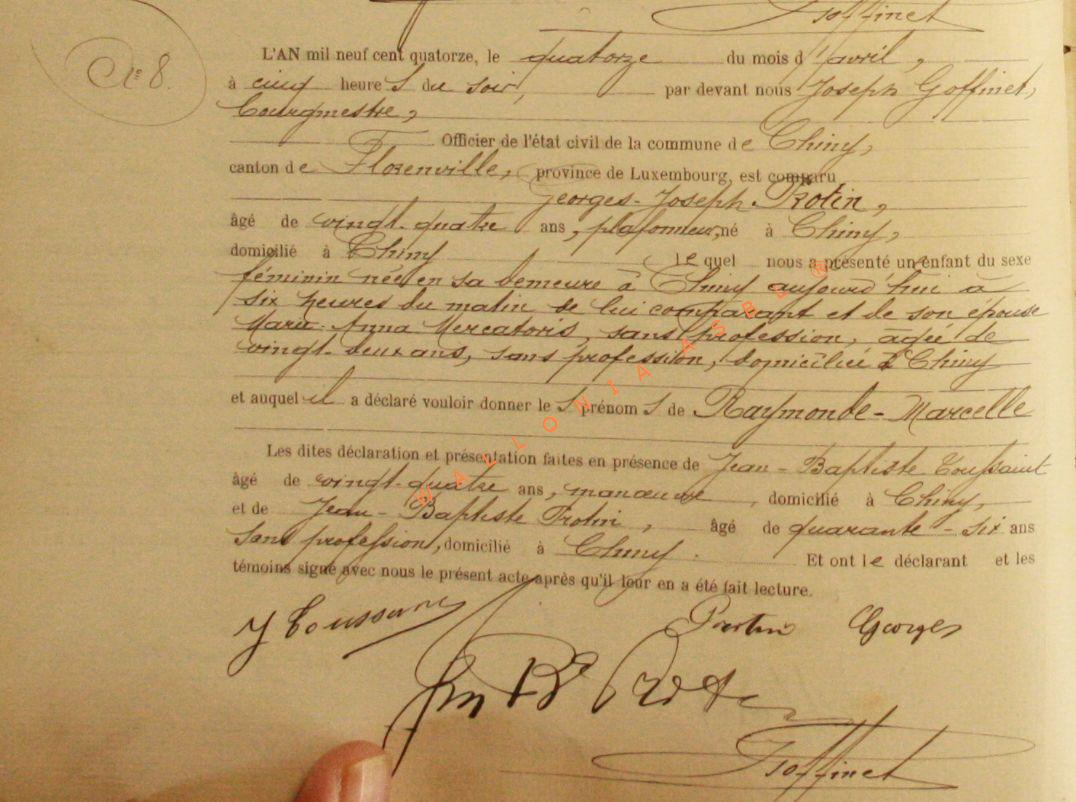 Goffinet
N° 8.
L'AN mil neuf cent quatorze, le quatorze du mois d'avril,
à cinq heure S du soir, par devant nous Joseph Goffinet,
Bourgmestre,
Officier de l'état civil de la commune de Chiny,
canton de Florenville, province de Luxembourg, est comparu
Georges-Joseph Protin,
âgé de vingt-quatre ans, plafonneur, né à Chiny,
domicilié à Chiny lequel nous a présenté un enfant du sexe
féminin née en sa demeure à Chiny aujourd'hui à
six heures du matin de lui comparant et de son épouse
Marie-Anna Mercatoris, sans profession, âgée de
vingt-deux ans, sans profession, domiciliée à Chiny
et auquel il a déclaré vouloir donner le S prénom S de Raymonde-Marcelle
Les dites déclaration et présentation faites en présence de Jean-Baptiste Toussaint
âgé de vingt-quatre ans, manœuvre, domicilié à Chiny,
et de Jean-Baptiste Protin, âgé de quarante-six ans
sans profession, domicilié à Chiny. Et ont le déclarant et les
témoins signé avec nous le présent acte après qu'il leur en a été fait lecture.
J Toussaint
Protin Georges
Jn Bte Protin
Goffinet
WALLONIA ASBL